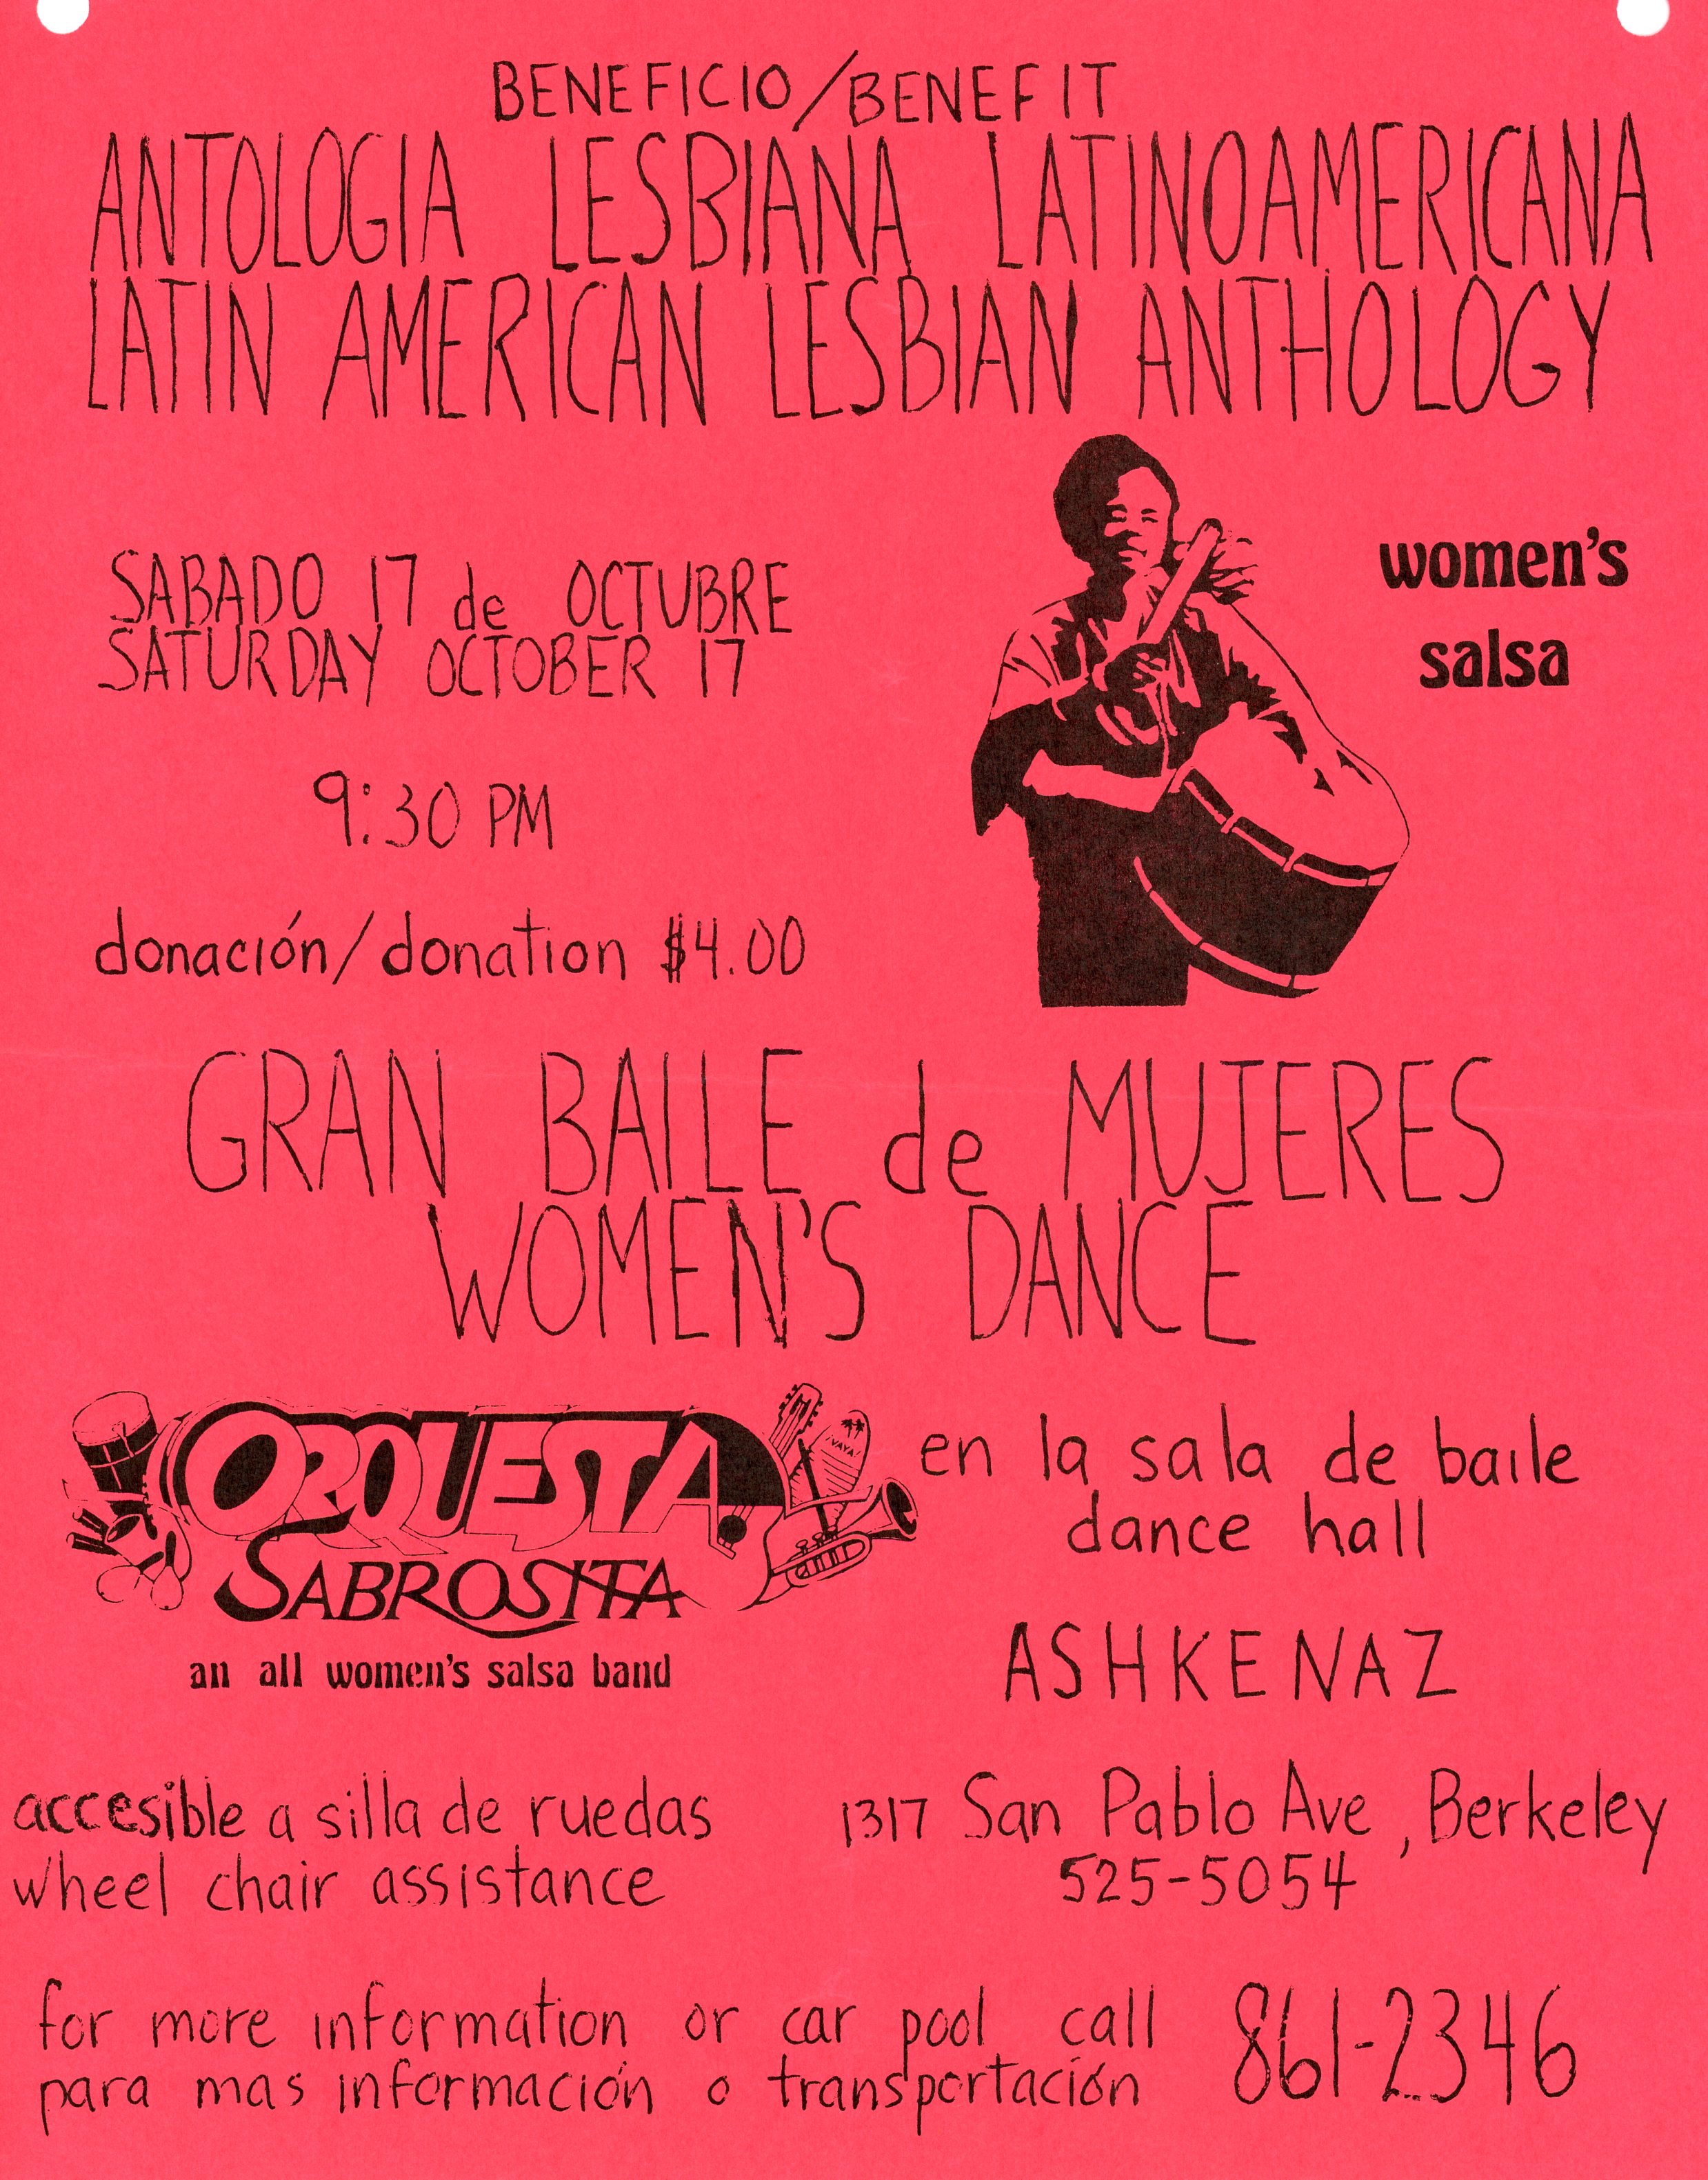 BENEFICIO/BENEFIT
ANTOLOGIA LESBIANA LATINOAMERICANA
LATIN AMERICAN LESBIAN ANTHOLOGY
SABADO 17 de OCTUBRE
SATURDAY OCTOBER 17
9:30 PM
donación/donation $4.00
women's
salsa
GRAN BAILE de MUJERES
WOMEN'S DANCE
ORQUESTA
VAYA!
SABROSITA
an all women's salsa band
en la sala de baile
dance hall
ASHKENAZ
accesible a silla de ruedas
wheel chair assistance
1317 San Pablo Ave, Berkeley
525-5054
for more information or car pool call
para mas información o transportación
861-2346